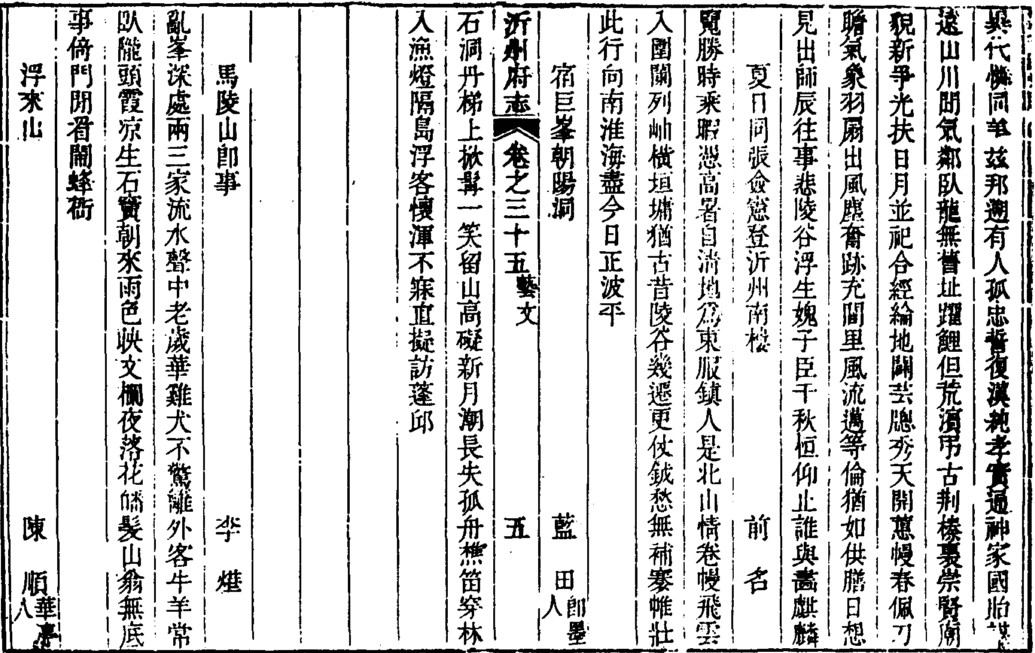 異代慨同羊茲邦遡有人孤忠誓復漢純孝實通神家國胎謀
遠山川間氣鄰臥龍無舊址躍鯉但荒濱弔古荆榛裏崇賢廟
貌新爭光扶日月並祀合經綸地闢芸牕秀天開蕙幔春佩刀
瞻氣象羽扇出風塵奮跡充閭里風流邁等倫猶如供膳日想
見出師辰往事悲陵谷浮生媿子臣千秋恒仰止誰與畫麒麟
夏日同張僉憲登沂州南樓 前名
覽勝時乘暇憑高暑自淸地爲東服鎭人是北山情卷幔飛雲
入圍闌列岫橫垣墉猶古昔陵谷幾遷更仗鉞愁無補搴帷壯
此行向南淮海盡今日正波平
宿巨峯朝陽洞 藍田卽墨人
沂州府志 卷之三十五藝文 五
石洞丹梯上掀髯一笑留山高礙新月潮長失孤舟樵笛穿林
入漁燈隔島浮客懷渾不寐直擬訪蓬邱
馬陵山卽事 李𤊟
亂峯深處兩三家流水聲中老歲華雞犬不驚籬外客牛羊常
臥隴頭霞凉生石竇朝來雨色映文欄夜落花皤髮山翁無底
事倚門閒看鬧蜂衙
浮來山 陳順華亭人